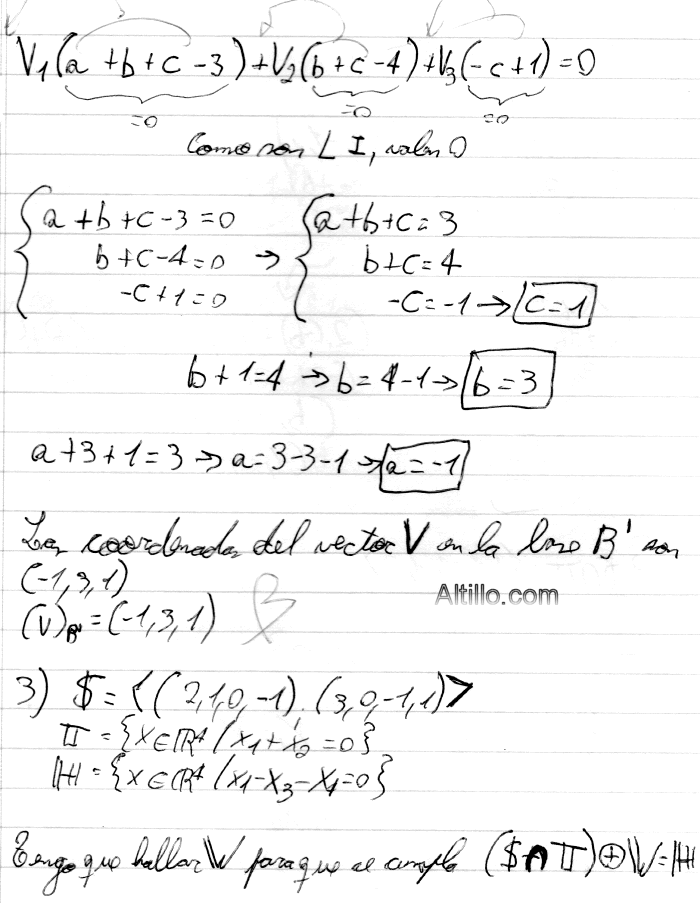 V₁(a+b+c-3)+V₂(b+c-4)+V₃(-c+1)=0
=0 =0 =0
Como son L I, valen 0
{a+b+c-3=0 {a+b+c=3
b+c-4=0 → b+c=4
-c+1=0 -c=-1→ c=1
b+1=4 → b=4-1→ b=3
a+3+1=3 → a=3-3-1→ a=-1
Las coordenadas del vector V en la base B' son
(-1,3,1)
(V)B'=(-1,3,1) B
Altillo.com
3) $=<(2,1,0,-1), (3,0,-1,1)>
Π={X∈ℝ⁴/X₁+X₂=0}
ℍ={X∈ℝ⁴/X₁-X₃-X₄=0}
Tengo que hallar W para que se cumpla ($∩Π)⊕W=ℍ